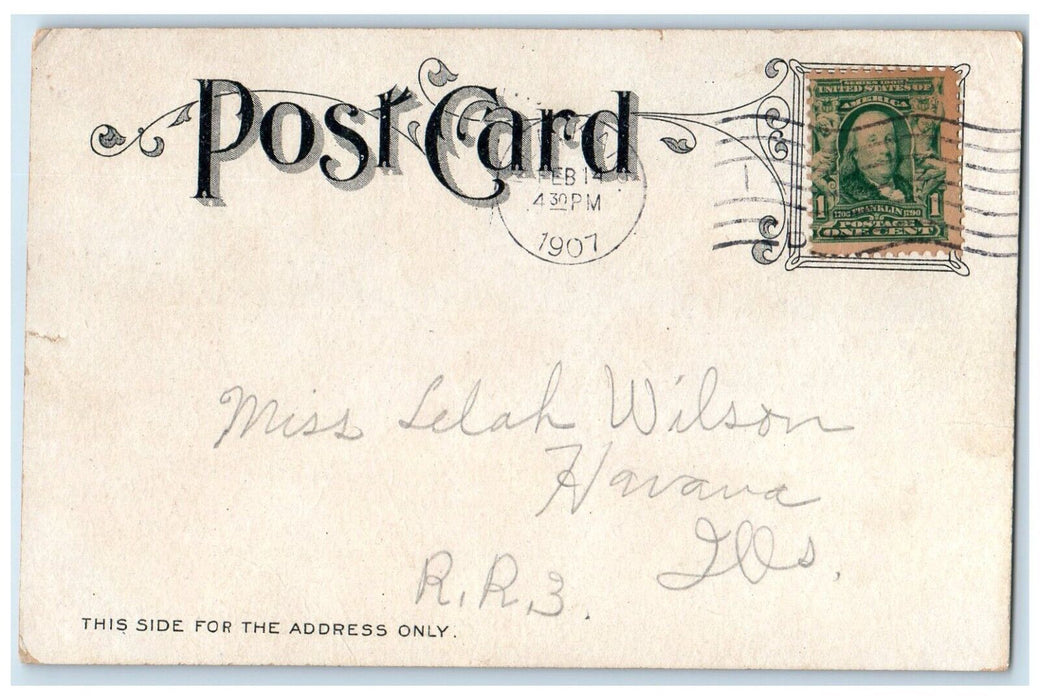 Post Card
FEB 14
4 30 PM
1907
SERIES 1902
UNITED STATES OF
AMERICA
1706 FRANKLIN 1790
POSTAGE
1 ONE CENT 1
Miss Lelah Wilson
Havana
Ills.
R.R.3.
THIS SIDE FOR THE ADDRESS ONLY.